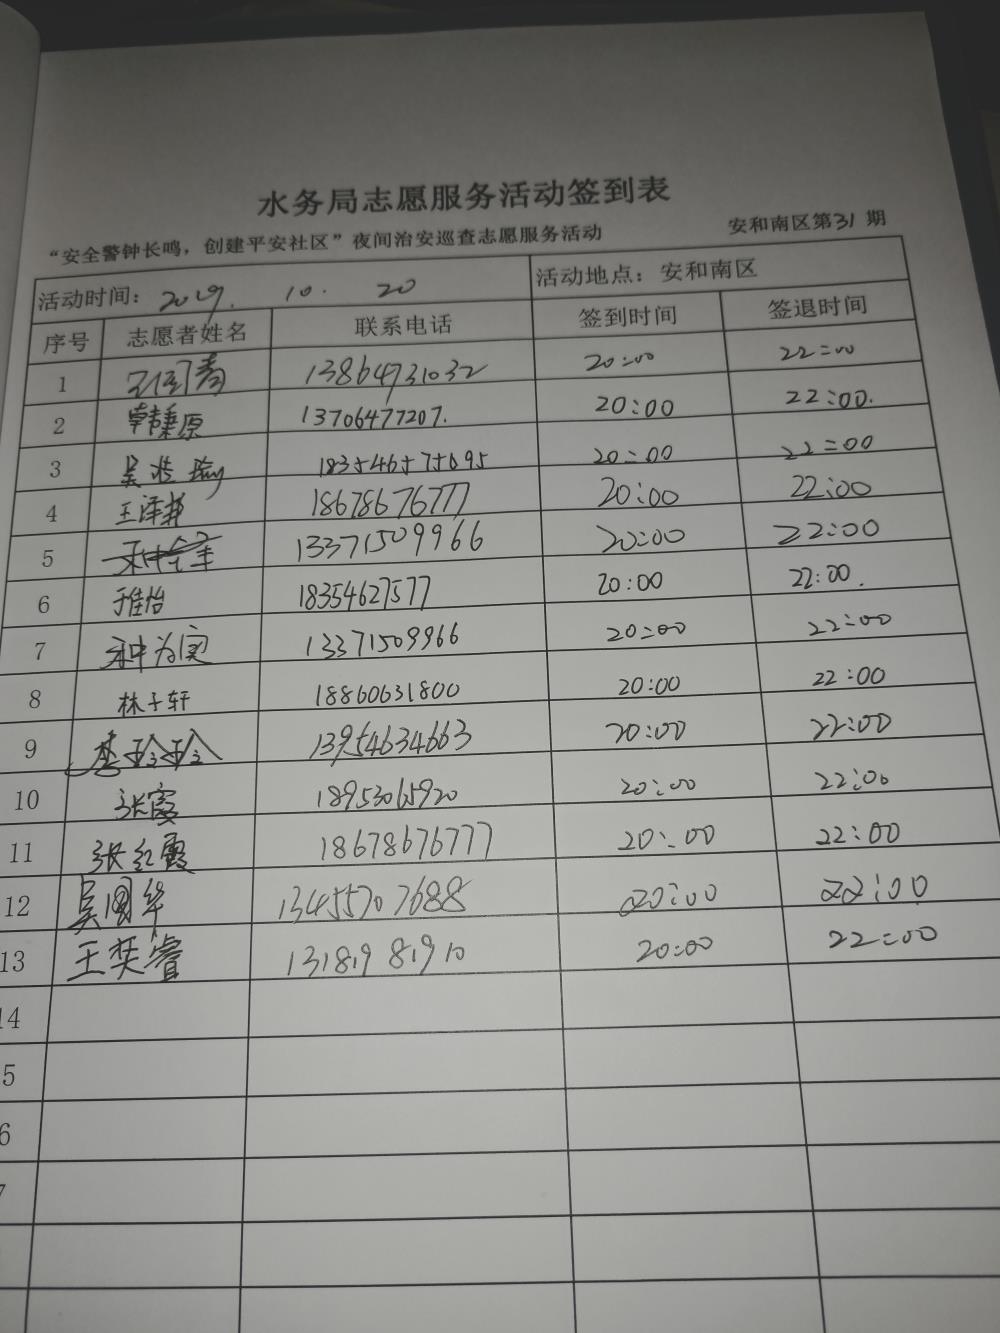 水务局志愿服务活动签到表
“安全警钟长鸣，创建平安社区”夜间治安巡查志愿服务活动 安和南区第31期
活动时间：2019. 10. 20 活动地点：安和南区
序号 志愿者姓名 联系电话 签到时间 签退时间
1 13864731032 20:00 22:00
2 韩秉原 13706477207. 20:00 22:00.
3 18354657695 20:00 22:00
4 18678676777 20:00 22:00
5 13371509966 20:00 22:00
6 于佳怡 18354627577 20:00 22:00.
7 种为实 13371509966 20:00 22:00
8 林子轩 18860631800 20:00 22:00
9 13954634663 20:00 22:00
10 张霞 18953065920 20:00 22:00
11 张红霞 18678676777 20:00 22:00
12 吴国华 13455707688 20:00 22:00
13 王奕睿 13181981910 20:00 22:00
14
5
6
7